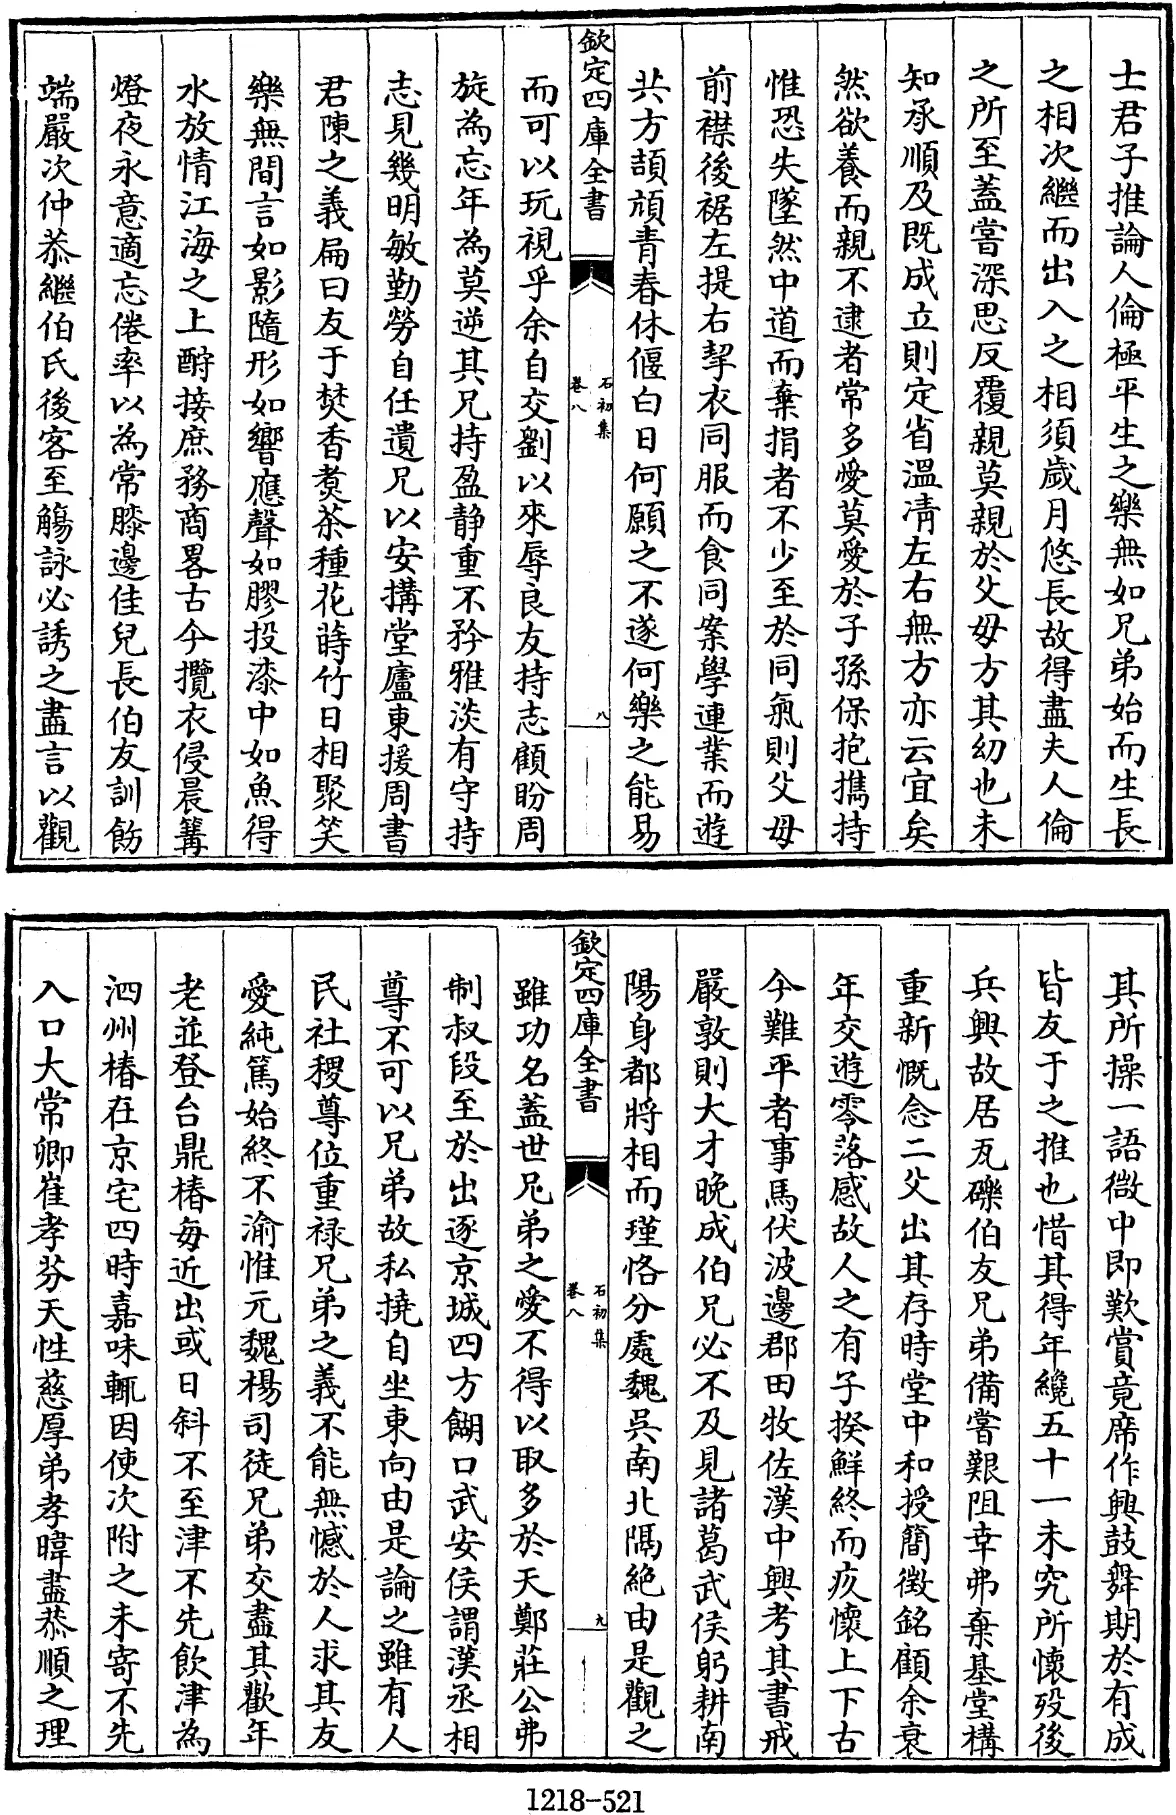 士君子推論人倫極平生之樂無如兄弟始而生長
之相次繼而出入之相須歲月悠長故得盡夫人倫
之所至蓋嘗深思反覆親莫親於父母方其幼也未
知承順及既成立則定省溫凊左右無方亦云宜矣
然欲養而親不逮者常多愛莫愛於子孫保抱攜持
惟恐失墜然中道而棄捐者不少至於同氣則父母
前襟後裾左提右挈衣同服而食同案學連業而遊
共方頡頏青春休偃白日何願之不遂何樂之能易
欽定四庫全書
石初集
卷八
八
而可以玩視乎余自交劉以來辱良友持志顧盼周
旋為忘年為莫逆其兄持盈静重不矜雅淡有守持
志見幾明敏勤勞自任遺兄以安搆堂廬東援周書
君陳之義扁曰友于焚香煑茶種花蒔竹日相聚笑
樂無間言如影隨形如響應聲如膠投漆中如魚得
水放情江海之上酧接庶務商畧古今攬衣侵晨篝
燈夜永意適忘倦率以為常膝邊佳兒長伯友訓飭
端嚴次仲恭繼伯氏後客至觴詠必誘之盡言以觀
其所操一語微中即歎賞竟席作興鼓舞期於有成
皆友于之推也惜其得年纔五十一未究所懷歿後
兵興故居瓦礫伯友兄弟備嘗艱阻幸弗棄基堂構
重新慨念二父出其存時堂中和授簡徵銘顧余衰
年交遊零落感故人之有子揆鮮終而疚懷上下古
今難平者事馬伏波邊郡田牧佐漢中興考其書戒
嚴敦則大才晚成伯兄必不及見諸葛武侯躬耕南
陽身都將相而瑾恪分處魏吳南北隔絶由是觀之
欽定四庫全書
石初集
卷八
九
雖功名蓋世兄弟之愛不得以取多於天鄭莊公弗
制叔段至於出逐京城四方餬口武安侯謂漢丞相
尊不可以兄弟故私撓自坐東向由是論之雖有人
民社稷尊位重禄兄弟之義不能無憾於人求其友
愛純篤始終不渝惟元魏楊司徒兄弟交盡其歡年
老並登台鼎椿每近出或日斜不至津不先飲津為
泗州椿在京宅四時嘉味輒因使次附之未寄不先
入口大常卿崔孝芬天性慈厚弟孝暐盡恭順之理
1218-521